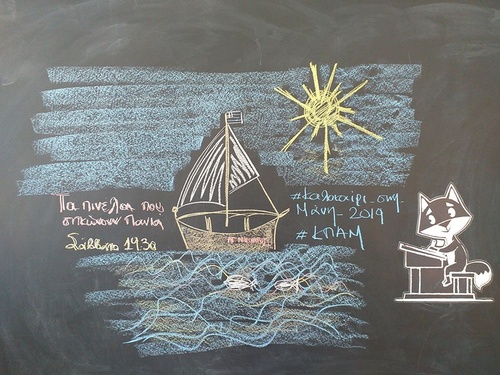 Τα πινέλα που
σηκώνουν Πανιά
Σάββατο 1930
#καλοκαίρι_στη_
Μάνη_2019
#ΚΠΑΜ